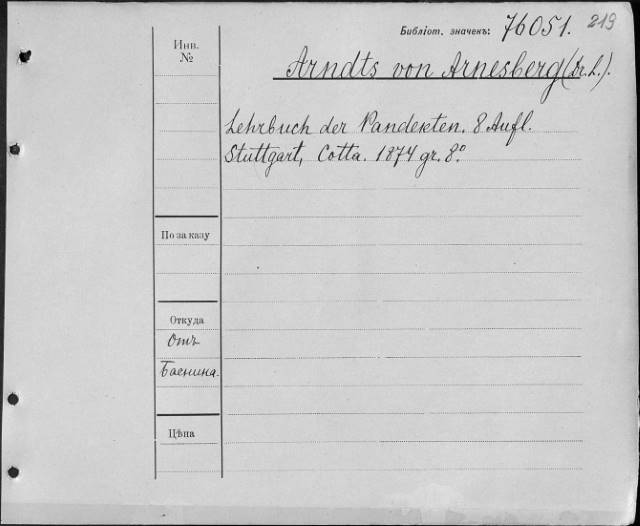 Библіот. значекъ: 76051. 219
Инв.
№
Arndts von Arnesberg (Dr. L.).
Lehrbuch der Pandekten. 8 Aufl.
Stuttgart, Cotta. 1874 gr. 8°.
По заказу
Откуда
Отъ
Баенина.
Цѣна